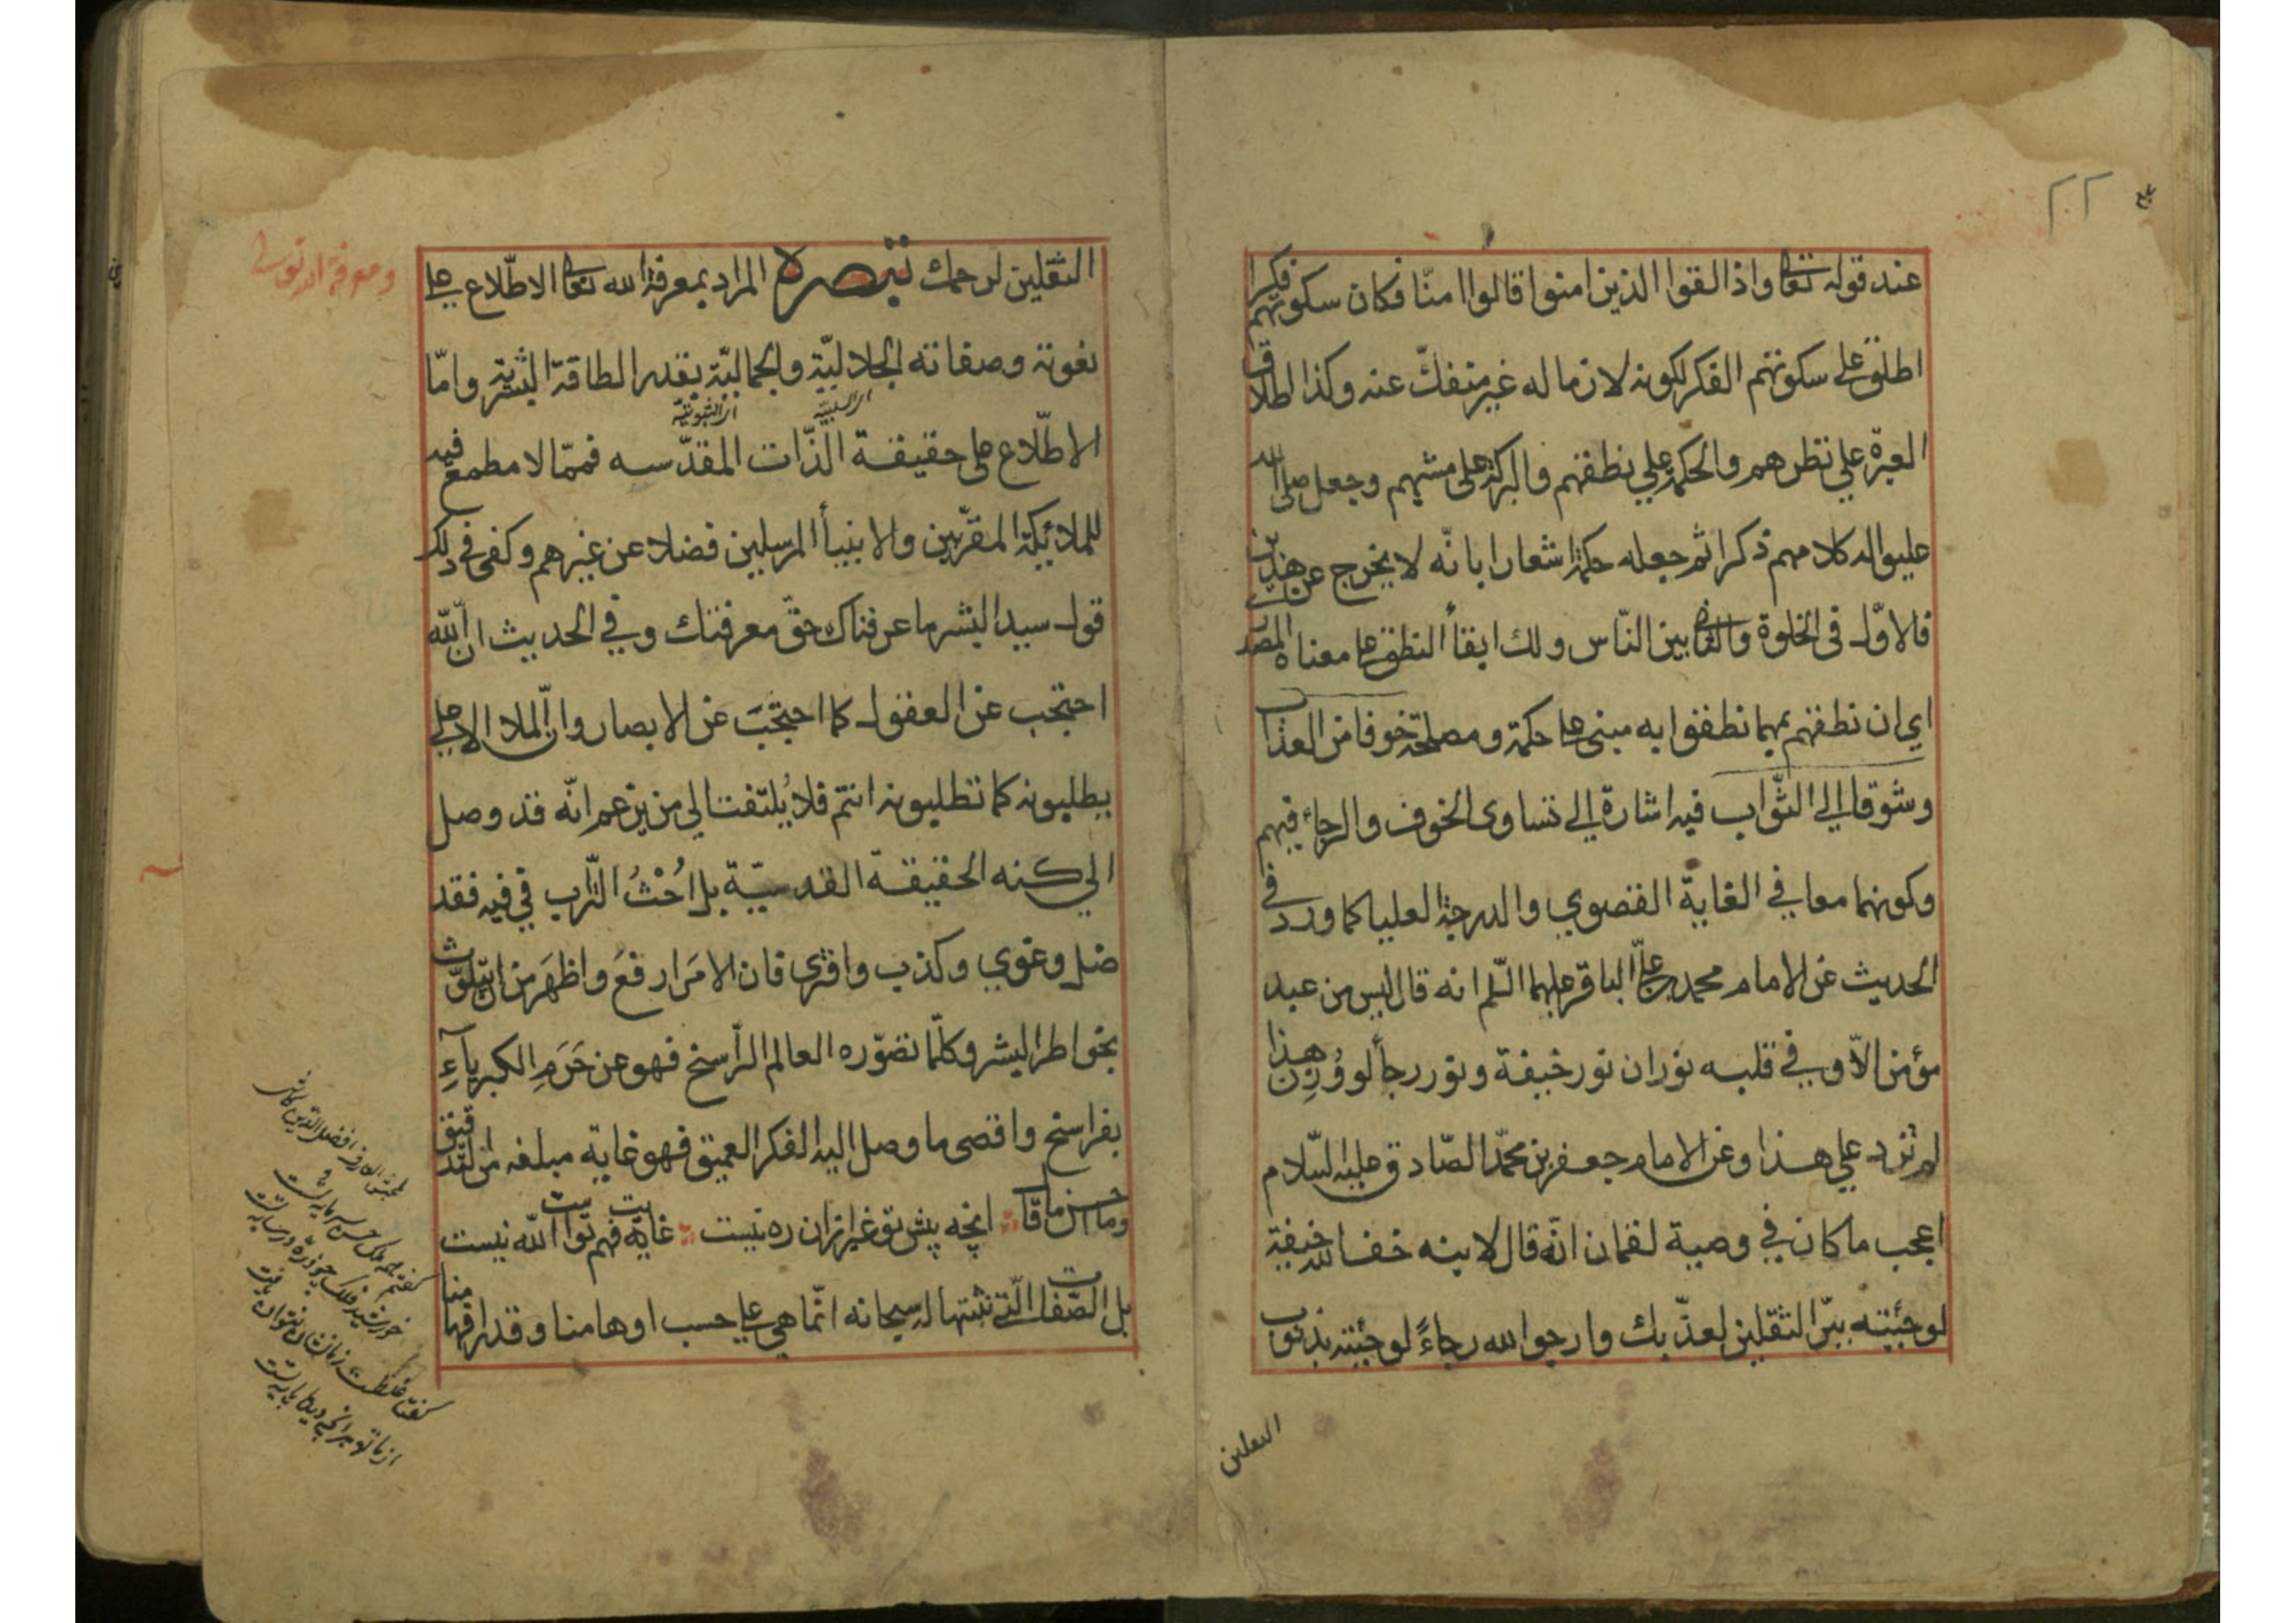 ٢٢
عند قوله تعالى واذا لقوا الذين امنوا قالوا امنّا فكان سكوتهم فكرا
اطلق على سكوتهم الفكر لكونه لازما له غير منفكّ عنه وكذا اطلاق
العبرة علي نظرهم والحكمة علي نطقهم والبركة على مشيهم وجعل صلى الله
عليه واله كلامهم ذكرا ثم جعله حكمة اشعارا بانّه لا يخرج عن هذين
فالاوّل في الخلوة والثاني بين الناس ولك ابقأ النطق على معناه المصدر
اي ان نطقهم بهما نطقوا به مبني على حكمة ومصلحة خوفا من العذاب
وشوقا إلي الثّواب فيه اشارة إلي تساوى الخوف والرجاء فيهم
وكونهما معا في الغاية القصوي والدرجة العليا كما ورد في
الحديث عن الامام محمد بن علي الباقر عليهما السلم انه قال ليس من عبد
مؤمن الاّ وفي قلبه نوران نور خيفة ونور رجأ لو وُزِن هذا
لم تزد علي هذا وعن الامام جعفر بن محمّد الصّادق عليه السّلام
اعجب ما كان في وصية لقمان انّه قال لابنه خف الله خيفة
لو جئته ببرّ الثقلين لعذّبك وارجوا لله رجاءً لو جئته بذنوب
الثقلين
الثقلين لرحمك تبصرة المراد بمعرفة الله تعالى الاطّلاع على
ومعرفة الله تعالى
نعوته وصفاته الجلاليّة والجماليّة بقدر الطاقة البشرية وامّا
اى السلبية اى الثبوتية
الاطّلاع على حقيقة الذّات المقدّسه فممّا لا مطمع فيه
للملائكة المقرّبين والانبيأ المرسلين فضلا عن غيرهم وكفى في ذلك
قول سيد البشر ما عرفناك حقّ معرفتك وفي الحديث انّ الله
احتجب عن العقول كما احتجَبَ عن الابصار وانّ الملا الاعلي
يطلبونه كما تطلبونه انتم فلا يُلتفت الي من يزعم انّه قد وصل
الي كنه الحقيقة القدسيّة بل احُثُ التّراب في فيه فقد
ضل وغوي وكذب وافترى فان الامرَ ارفعَ واظهَر من ان يتلوّث
بخواطر البشر وكلّما تصوّره العالم الرّاسخ فهو عن حَرَمِ الكبرياَءِ
بفراسخ واقصى ما وصل اليه الفكر العميق فهو غاية مبلغه من التّدقيق
وما احسن ما قال انچه پيش تو غير ازان ره نيست غايت فهم تو است الله نيست
بل الصّفات الّتي نثبتها له سبحانه انّما هي علي حسب اوهامنا وقدر افهامنا
گفتم همه ملك حسن سرمايه تست
خورشيد فلك چو ذره در سايه تست
گفتا غلطي ز ما نشان نتوان يافت
از ما تو هر آنچه ديدهٔ پايه تست